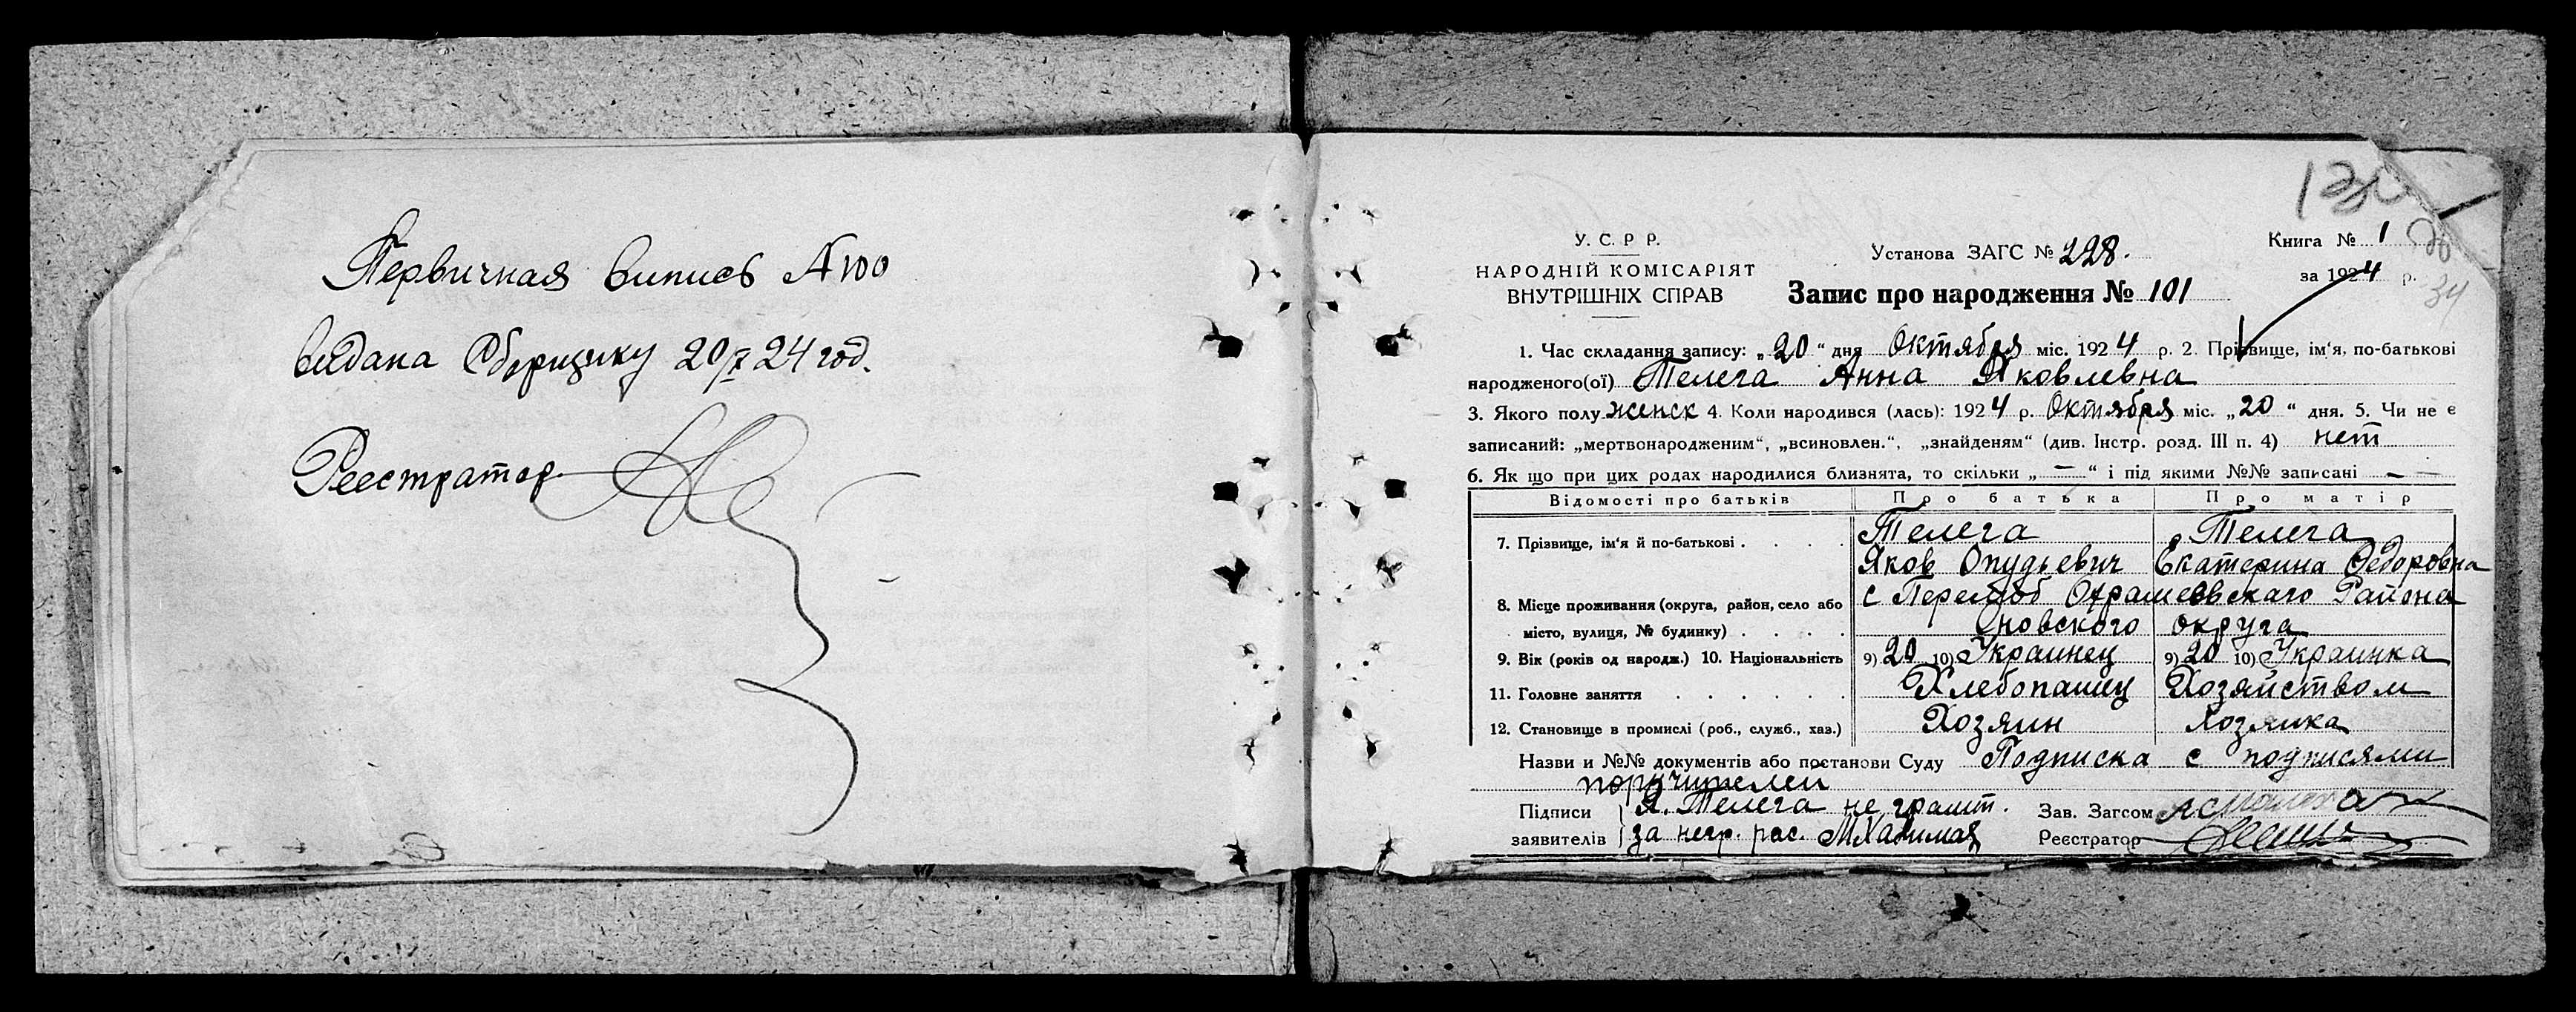 Первичная випись №100
видана Сборщику 20/X 24 год.
Реестратор
У. С. Р Р.
НАРОДНІЙ КОМІСАРІЯТ
ВНУТРІШНІХ СПРАВ
Установа ЗАГС № 228.
Запис про народження № 101
Книга № 1
за 1924 р.
34
1. Час складання запису: „20“ дня Октября міс. 1924 р. 2 Прізвище, ім'я, по-батькові
народженого(ої) Телега Анна Яковлевна
3. Якого полу женск 4. Коли народився (лась): 1924 р. Октября міс. „20“ дня. 5. Чи не є
записаний: „мертвонародженим“, „всиновлен.“, „знайденям“ (див. Інстр. розд. III п. 4) нет
6. Як що при цих родах народилися близнята, то скільки „—“ і під якими №№ записані —
Відомості про батьків Про батька Про матір
7. Прізвище, ім'я й по-батькові . . . . Телега Телега
Яков Опудьевич Екатерина Федоровна
8. Місце проживання (округа, район, село або с Перелюб Охрамеевскаго Района
місто, вулиця, № будинку) . . . . Сновского округа
9. Вік (років од народж.) 10. Національність 9) 20 10) Украинец 9) 20 10) Украинка
11. Головне заняття . . . . . . Хлебопашец Хозяйством
12. Становище в промислі (роб., служб., хаз.) Хозяин Хозяйка
Назви и №№ документів або постанови Суду Подписка с подписями
поручителей
Підписи Я. Телега не грамт. Зав. Загсом
заявителів за негр. рас. Реєстратор